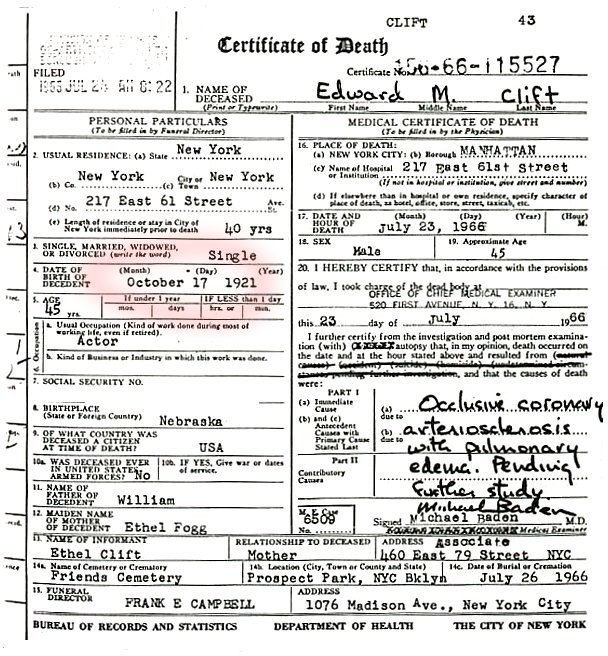 CLIFT 43
Certificate of Death
Certificate No. 156-66-115527
FILED
1966 JUL 26 AM 8:22
1. NAME OF DECEASED Edward M. Clift
(Print or Typewrite) First Name Middle Name Last Name
PERSONAL PARTICULARS
(To be filled in by Funeral Director)
2. USUAL RESIDENCE: (a) State New York
(b) Co. New York City or (c) Town New York
(d) No. 217 East 61 Street Ave. St.
(e) Length of residence or stay in City of New York immediately prior to death 40 yrs
3. SINGLE, MARRIED, WIDOWED, OR DIVORCED (write the word) Single
4. DATE OF BIRTH OF DECEDENT (Month) (Day) (Year)
October 17 1921
5. AGE 45 yrs. If under 1 year mos. days IF LESS than 1 day hrs. or min.
6. Occupation a. Usual Occupation (Kind of work done during most of working life, even if retired).
Actor
b. Kind of Business or Industry in which this work was done.
7. SOCIAL SECURITY NO.
8. BIRTHPLACE (State or Foreign Country) Nebraska
9. OF WHAT COUNTRY WAS DECEASED A CITIZEN AT TIME OF DEATH? USA
10a. WAS DECEASED EVER IN UNITED STATES ARMED FORCES? No 10b. IF YES, Give war or dates of service.
11. NAME OF FATHER OF DECEDENT William
12. MAIDEN NAME OF MOTHER OF DECEDENT Ethel Fogg
MEDICAL CERTIFICATE OF DEATH
(To be filled in by the Physician)
16. PLACE OF DEATH:
(a) NEW YORK CITY: (b) Borough MANHATTAN
(c) Name of Hospital or Institution 217 East 61st Street
(If not in hospital or institution, give street and number)
(d) If elsewhere than in hospital or own residence, specify character of place of death, as hotel, office, store, street, taxicab, etc.
17. DATE AND HOUR OF DEATH (Month) (Day) (Year) (Hour)
July 23, 1966 M.
18. SEX Male 19. Approximate Age 45
20. I HEREBY CERTIFY that, in accordance with the provisions
of law, I took charge of the dead body at
OFFICE OF CHIEF MEDICAL EXAMINER
520 FIRST AVENUE, N. Y. 16, N. Y.
this 23 day of July 1966
I further certify from the investigation and post mortem examination (with) autopsy that, in my opinion, death occurred on
the date and at the hour stated above and resulted from (natural
causes) (accident) (suicide) (homicide) (undetermined circumstances pending further investigation), and that the causes of death
were:
PART I
(a) Immediate Cause (a) Occlusive coronary
due to
(b) and (c) Antecedent Causes with Primary Cause Stated Last (b) arteriosclerosis
due to with pulmonary
Part II
Contributory Causes (c) edema. Pending
further study.
M. E. Case No. 6509 Michael Baden
Signed Michael Baden M.D.
Associate Medical Examiner
13. NAME OF INFORMANT RELATIONSHIP TO DECEASED ADDRESS
Ethel Clift Mother 460 East 79 Street NYC
14a. Name of Cemetery or Crematory 14b. Location (City, Town or County and State) 14c. Date of Burial or Cremation
Friends Cemetery Prospect Park, NYC Bklyn July 26 1966
15. FUNERAL DIRECTOR FRANK E CAMPBELL ADDRESS 1076 Madison Ave., New York City
BUREAU OF RECORDS AND STATISTICS DEPARTMENT OF HEALTH THE CITY OF NEW YORK